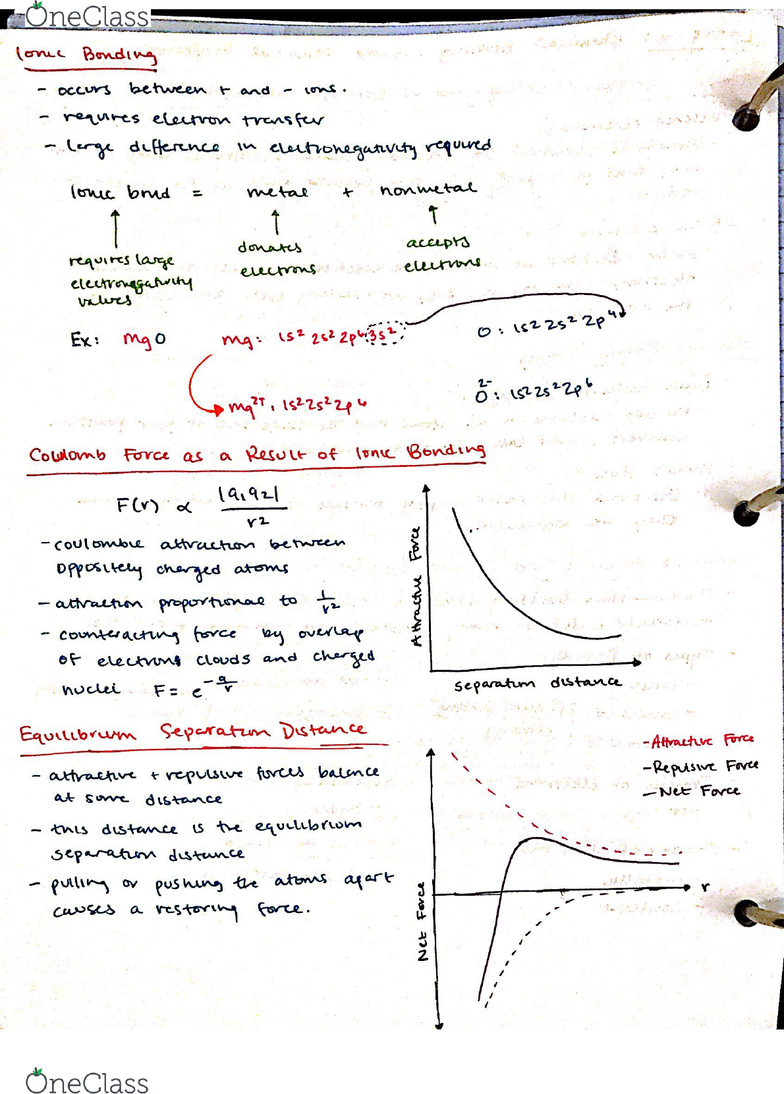 OneClass
Ionic Bonding
- occurs between + and - ions.
- requires electron transfer
- large difference in electronegativity required
Ionic bond = metal + nonmetal
requires large electronegativity values
donates electrons
accepts electrons
Ex: MgO Mg: 1s² 2s² 2p⁶ 3s² O: 1s² 2s² 2p⁴
Mg²⁺: 1s² 2s² 2p⁶ O²⁻: 1s² 2s² 2p⁶
Coulomb Force as a Result of Ionic Bonding
F(r) ∝ |q₁q₂| / r²
- coulombic attraction between
oppositely charged atoms
- attraction proportional to 1/r²
- counteracting force by overlap
of electrons clouds and charged
nuclei F = e^(-a/r)
Attractive Force
separation distance
Equilibrium Separation Distance
- attractive + repulsive forces balance
at some distance
- this distance is the equilibrium
separation distance
- pulling or pushing the atoms apart
causes a restoring force.
- Attractive Force
- Repulsive Force
- Net Force
Net Force
r
OneClass